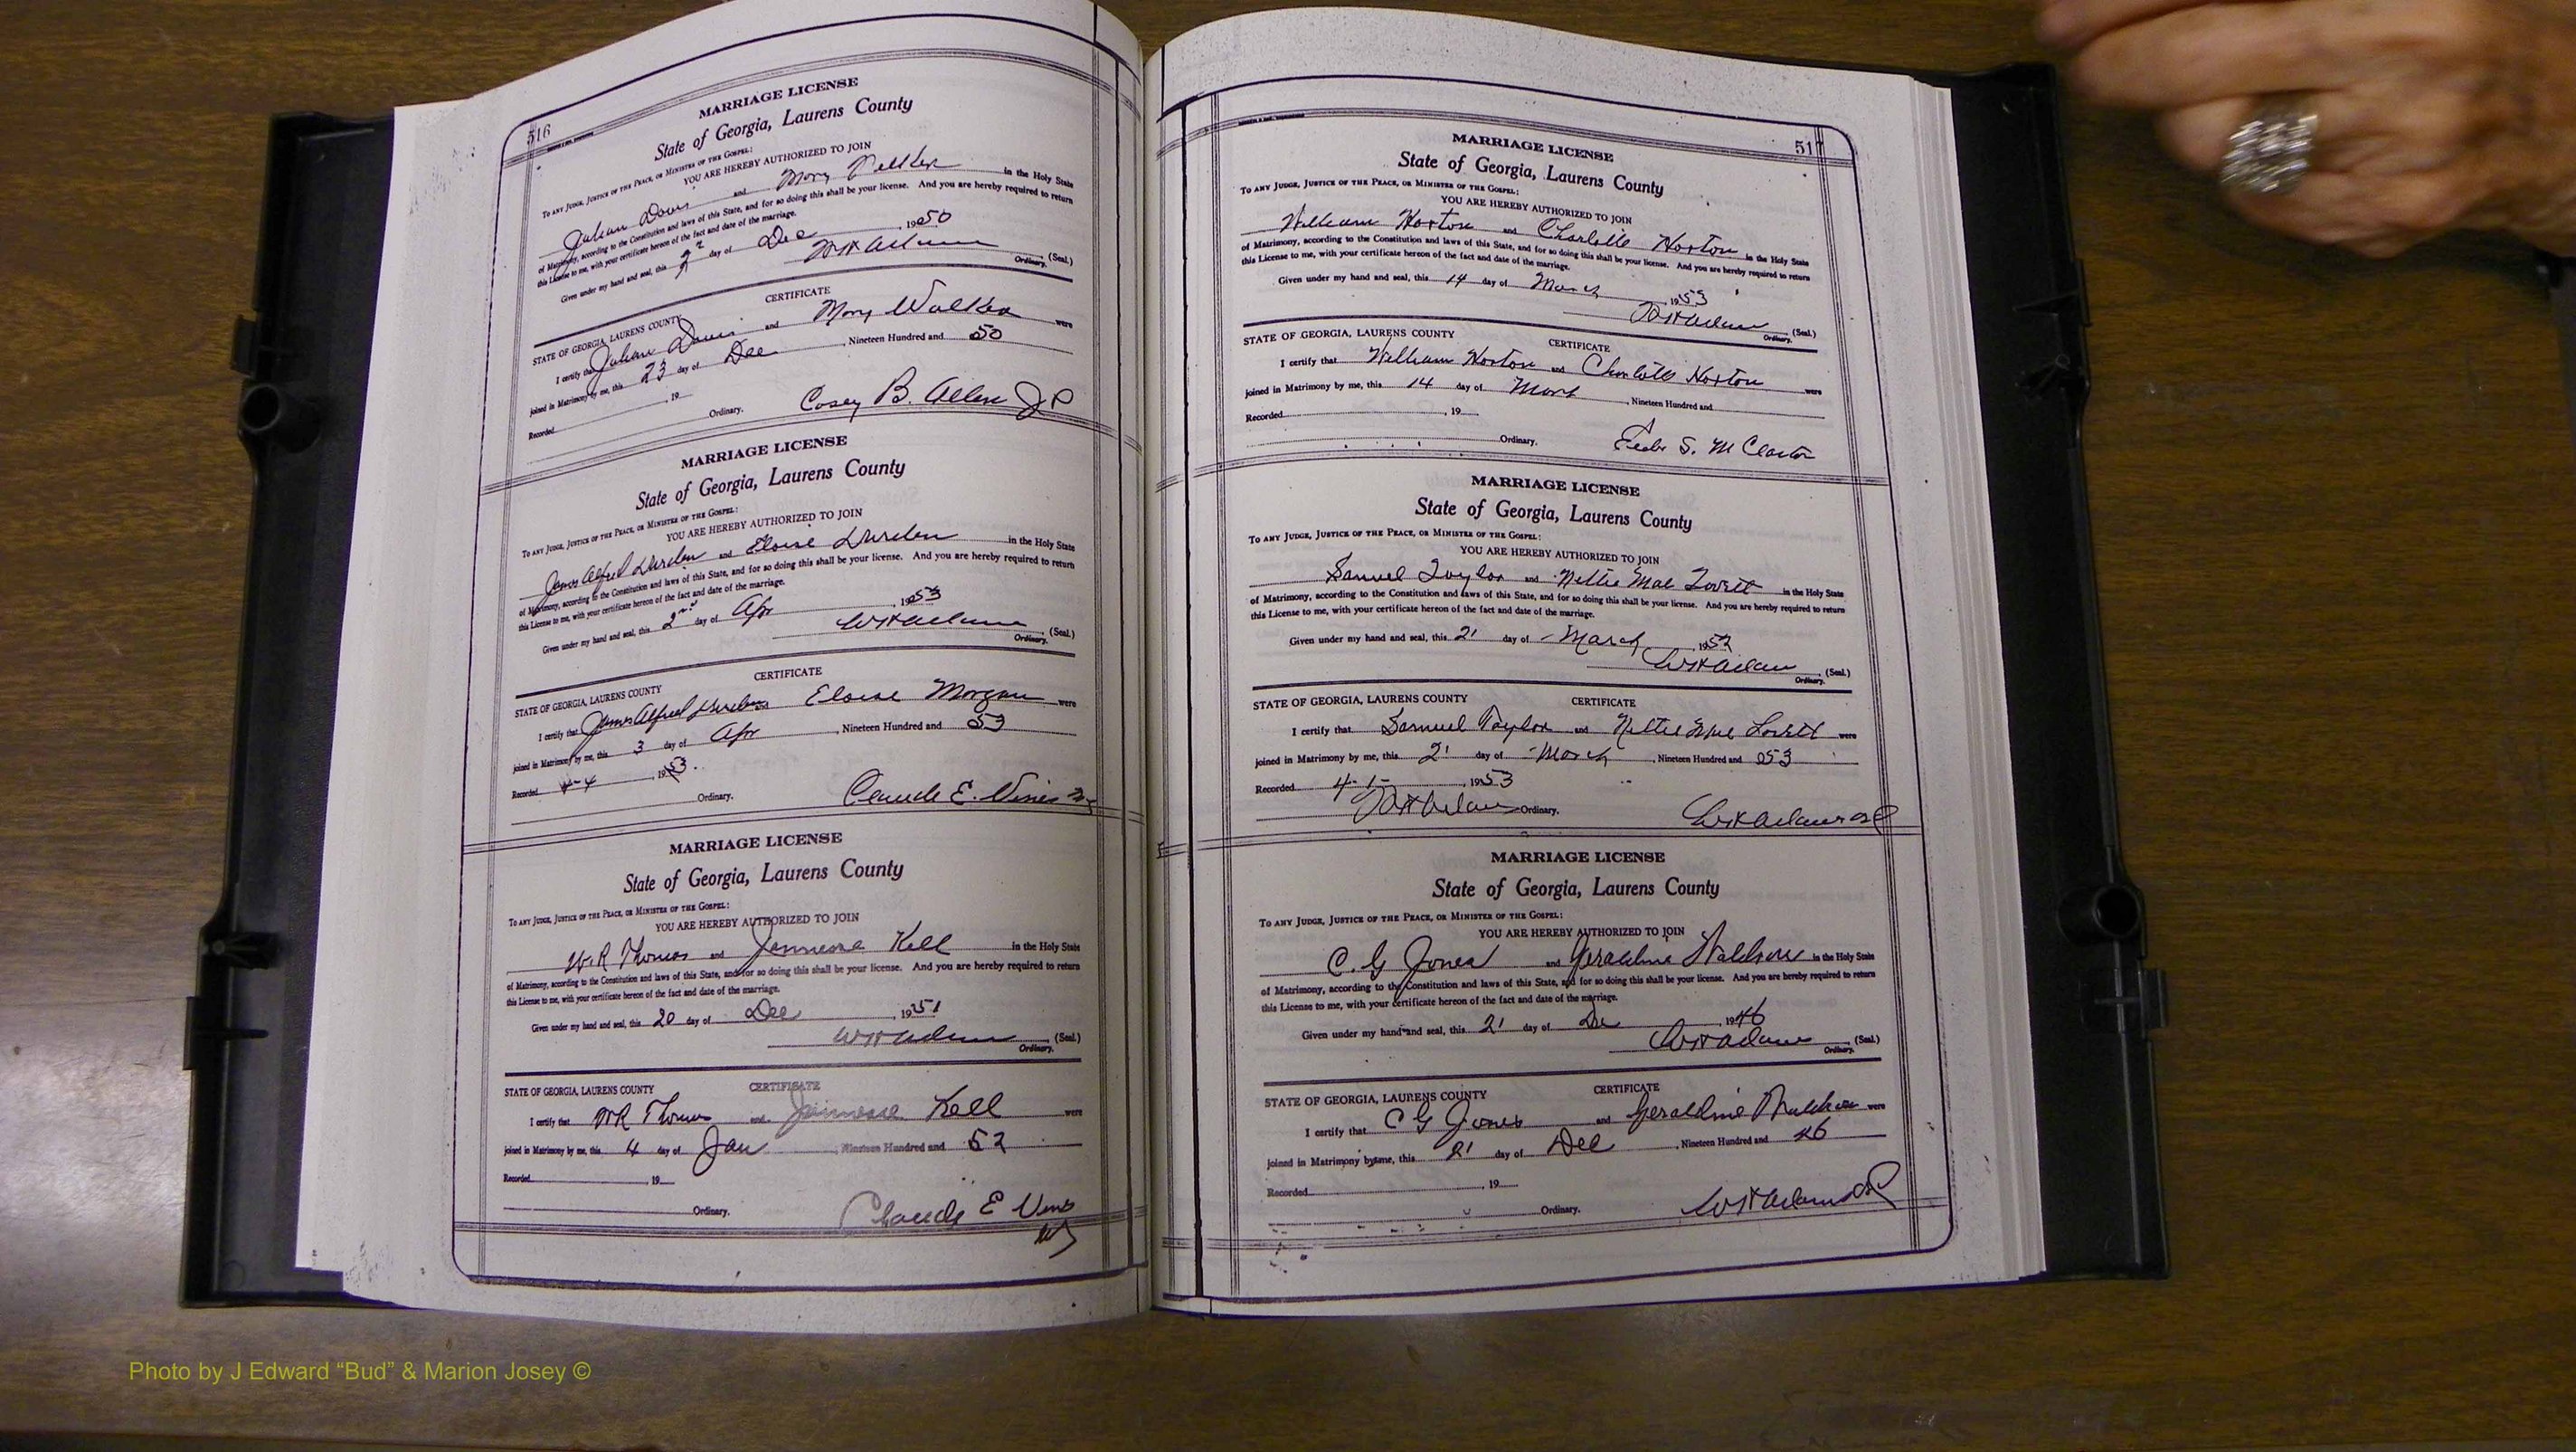 516
MARRIAGE LICENSE
State of Georgia, Laurens County
To any Judge, Justice of the Peace, or Minister of the Gospel:
YOU ARE HEREBY AUTHORIZED TO JOIN
Julian Davis and Mary Walker in the Holy State
of Matrimony, according to the Constitution and laws of this State, and for so doing this shall be your license. And you are hereby required to return
this License to me, with your certificate hereon of the fact and date of the marriage.
Given under my hand and seal, this day of Dec, 1950
(Seal.)
Ordinary.
CERTIFICATE
STATE OF GEORGIA, LAURENS COUNTY
I certify that Julian Davis and Mary Walker were
joined in Matrimony by me, this 23 day of Dec, Nineteen Hundred and 50
Recorded, 19
Ordinary. B. Allen JP
MARRIAGE LICENSE
State of Georgia, Laurens County
To any Judge, Justice of the Peace, or Minister of the Gospel:
YOU ARE HEREBY AUTHORIZED TO JOIN
James Alfred Durden and Eloise Durden in the Holy State
of Matrimony, according to the Constitution and laws of this State, and for so doing this shall be your license. And you are hereby required to return
this License to me, with your certificate hereon of the fact and date of the marriage.
Given under my hand and seal, this 2nd day of Apr, 1953
(Seal.)
Ordinary.
CERTIFICATE
STATE OF GEORGIA, LAURENS COUNTY
I certify that James Alfred Durden Eloise Morgan were
joined in Matrimony by me, this 3 day of Apr, Nineteen Hundred and 53
Recorded 4-4, 1953.
Ordinary. Claude E. Vines
MARRIAGE LICENSE
State of Georgia, Laurens County
To any Judge, Justice of the Peace, or Minister of the Gospel:
YOU ARE HEREBY AUTHORIZED TO JOIN
W.R Thomas and Jennesse Kell in the Holy State
of Matrimony, according to the Constitution and laws of this State, and for so doing this shall be your license. And you are hereby required to return
this License to me, with your certificate hereon of the fact and date of the marriage.
Given under my hand and seal, this 20 day of Dec, 1951
WH Adams (Seal.)
Ordinary.
CERTIFICATE
STATE OF GEORGIA, LAURENS COUNTY
I certify that WR Thomas and Jennesse Kell were
joined in Matrimony by me, this 4 day of Jan, Nineteen Hundred and 52
Recorded, 19
Ordinary. Claude E Vines
517
MARRIAGE LICENSE
State of Georgia, Laurens County
To any Judge, Justice of the Peace, or Minister of the Gospel:
YOU ARE HEREBY AUTHORIZED TO JOIN
William Horton and Charlotte Horton in the Holy State
of Matrimony, according to the Constitution and laws of this State, and for so doing this shall be your license. And you are hereby required to return
this License to me, with your certificate hereon of the fact and date of the marriage.
Given under my hand and seal, this 14 day of March, 1953
(Seal.)
Ordinary.
CERTIFICATE
STATE OF GEORGIA, LAURENS COUNTY
I certify that William Horton and Charlotte Horton were
joined in Matrimony by me, this 14 day of, Nineteen Hundred and
Recorded, 19
Ordinary. S.
MARRIAGE LICENSE
State of Georgia, Laurens County
To any Judge, Justice of the Peace, or Minister of the Gospel:
YOU ARE HEREBY AUTHORIZED TO JOIN
Samuel Taylor and Nettie Mae Lovett in the Holy State
of Matrimony, according to the Constitution and laws of this State, and for so doing this shall be your license. And you are hereby required to return
this License to me, with your certificate hereon of the fact and date of the marriage.
Given under my hand and seal, this 21 day of March
WH Adams (Seal.)
Ordinary.
STATE OF GEORGIA, LAURENS COUNTY CERTIFICATE
I certify that Samuel Taylor and Nettie Mae Lovett were
joined in Matrimony by me, this 21 day of March, Nineteen Hundred and 53
Recorded 4-1-, 1953
WH Adams Ordinary. WH Adams
MARRIAGE LICENSE
State of Georgia, Laurens County
To any Judge, Justice of the Peace, or Minister of the Gospel:
YOU ARE HEREBY AUTHORIZED TO JOIN
C. G Jones and Geraldine in the Holy State
of Matrimony, according to the Constitution and laws of this State, and for so doing this shall be your license. And you are hereby required to return
this License to me, with your certificate hereon of the fact and date of the marriage.
Given under my hand and seal, this 21 day of Dec, 1946
WH Adams (Seal.)
Ordinary.
STATE OF GEORGIA, LAURENS COUNTY CERTIFICATE
I certify that C G Jones and Geraldine were
joined in Matrimony by me, this 21 day of Dec, Nineteen Hundred and 46
Recorded, 19
Ordinary. WH Adams
Photo by J Edward “Bud” & Marion Josey ©